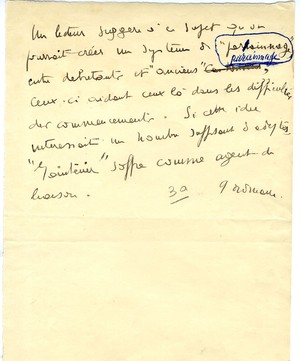 Un lecteur suggère à ce sujet qu'on
pourrait créer un système de "parrainage"
parrainage
entre débutants et anciens
ceux-ci aidant ceux là dans les difficultés
du commencement. Si cette idée
intéressait un nombre suffisant d'adeptes
s'offre comme agent de
liaison.
3a